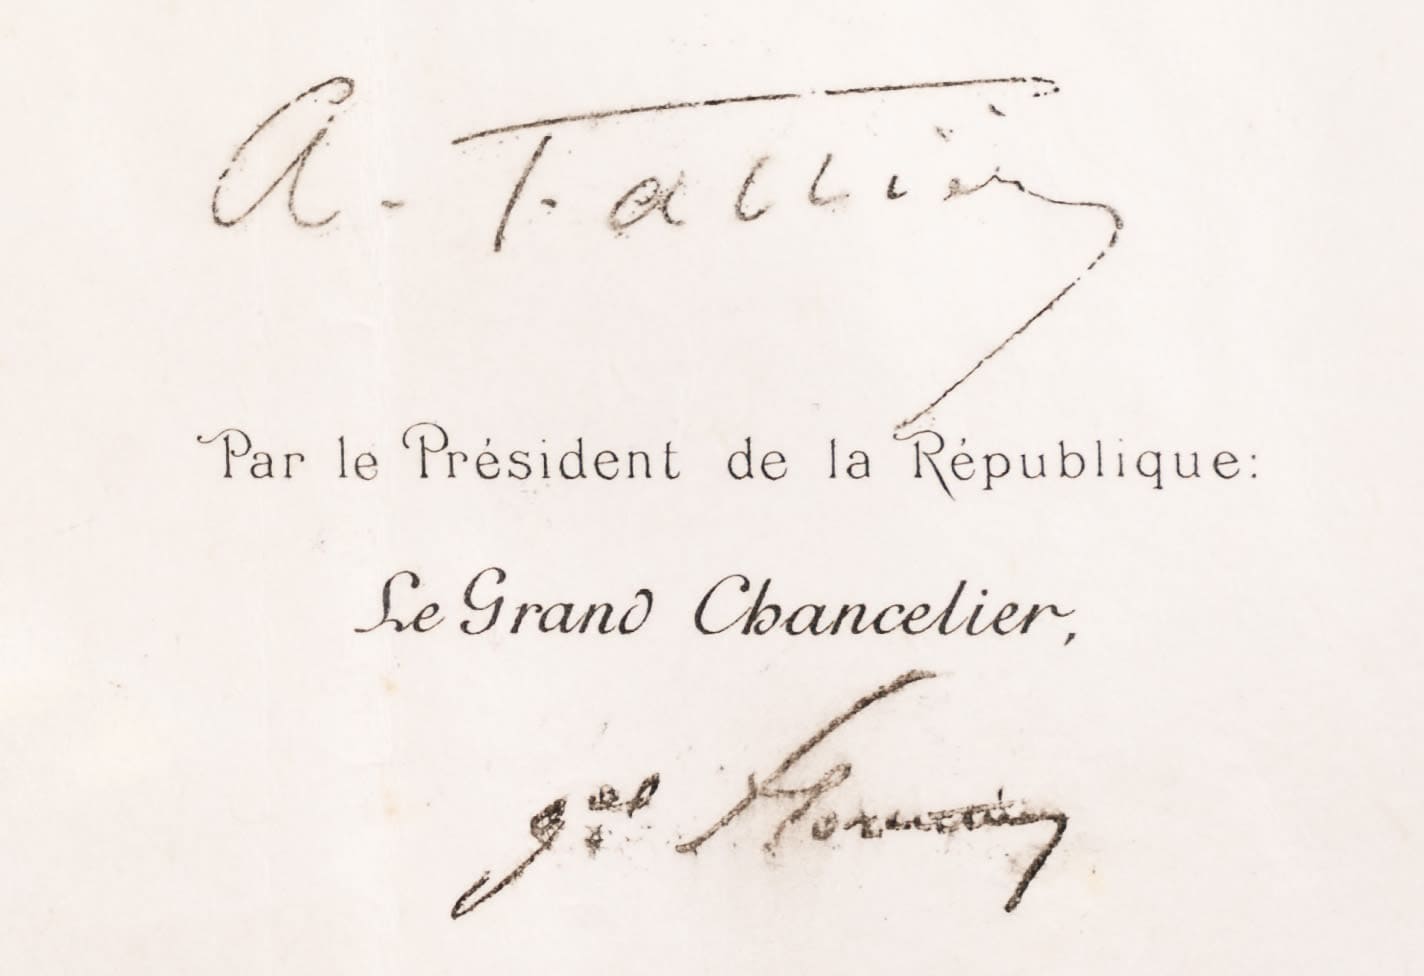 A. Fallières
Par le Président de la République:
Le Grand Chancelier,
gal Florentin